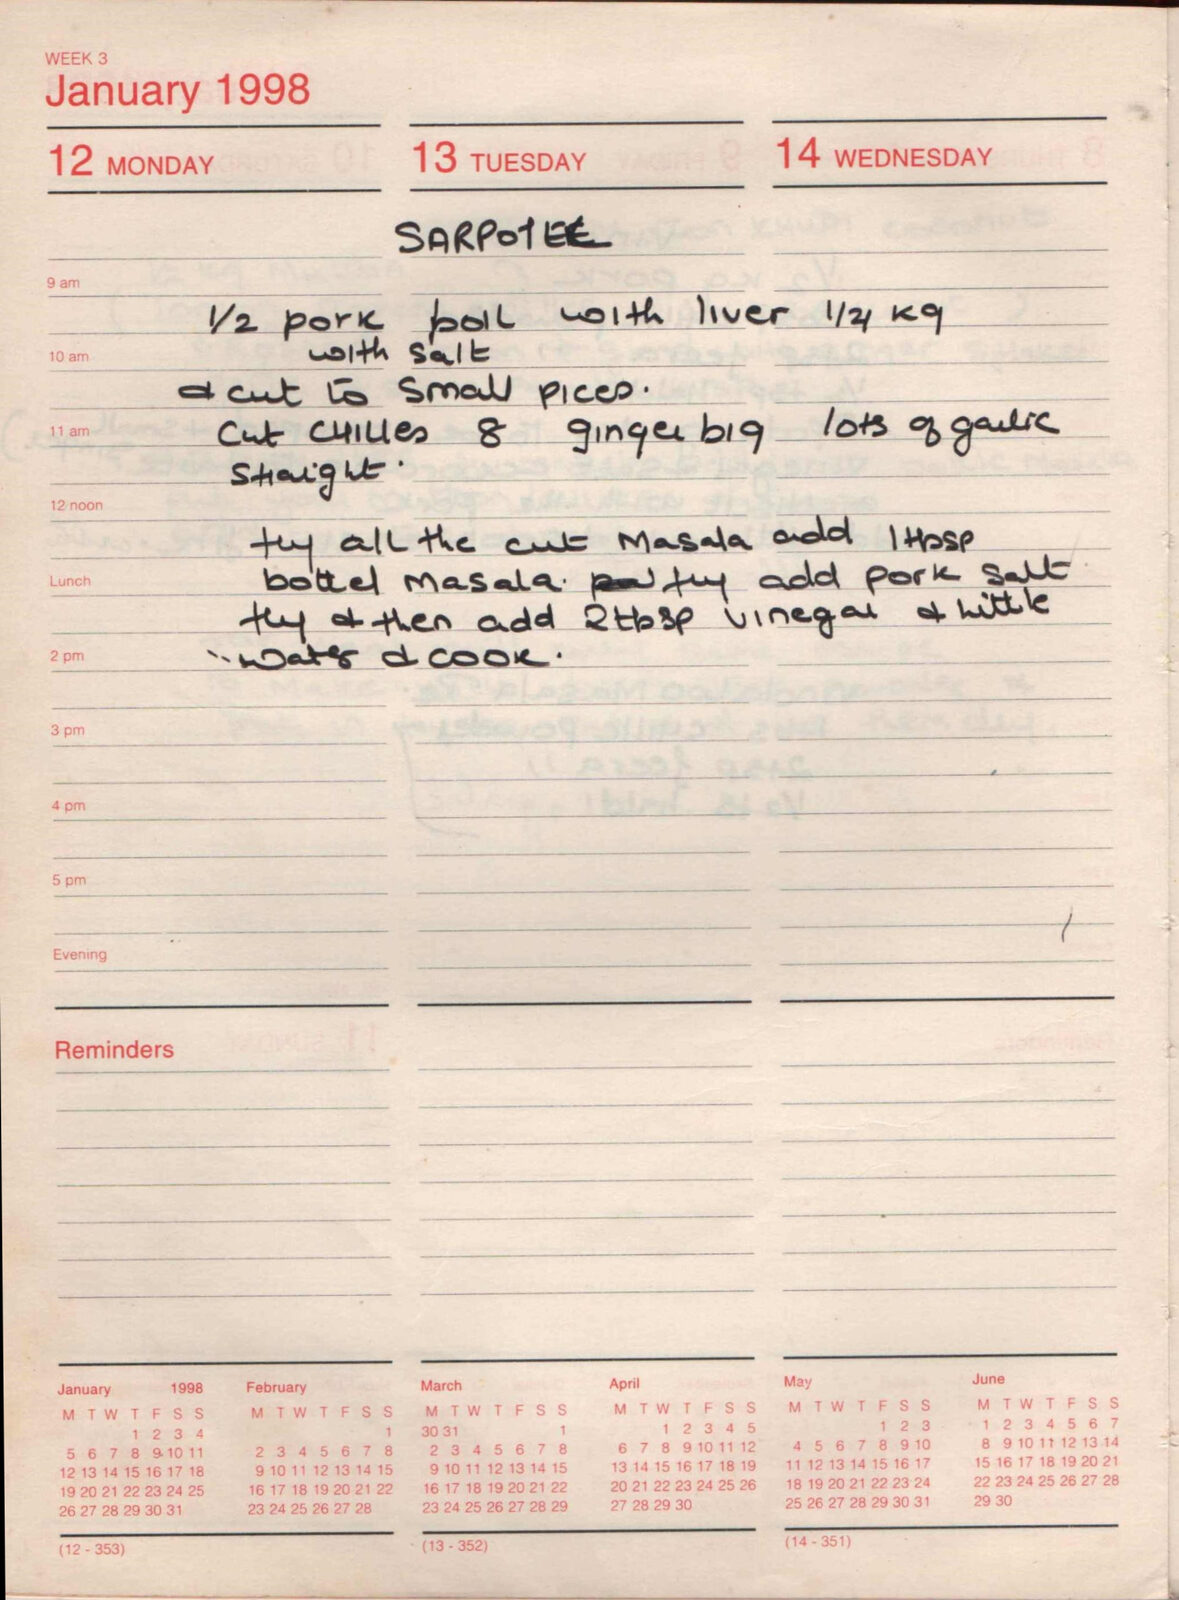 WEEK 3
January 1998
12 MONDAY
13 TUESDAY
14 WEDNESDAY
SARPOTEE
9 am
1/2 pork boil with liver 1/4 kg
10 am
with salt
& cut to small pices.
11 am
Cut CHILLES 8 ginger big lots of garlic
straight.
12 noon
fry all the cut Masala add 1 tbsp
Lunch
bottel masala. fry add pork salt
fry & then add 2 tbsp vinegar & little
2 pm
water & cook.
3 pm
4 pm
5 pm
Evening
Reminders
January 1998
M T W T F S S
1 2 3 4
5 6 7 8 9 10 11
12 13 14 15 16 17 18
19 20 21 22 23 24 25
26 27 28 29 30 31
February
M T W T F S S
1
2 3 4 5 6 7 8
9 10 11 12 13 14 15
16 17 18 19 20 21 22
23 24 25 26 27 28
March
M T W T F S S
30 31 1
2 3 4 5 6 7 8
9 10 11 12 13 14 15
16 17 18 19 20 21 22
23 24 25 26 27 28 29
April
M T W T F S S
1 2 3 4 5
6 7 8 9 10 11 12
13 14 15 16 17 18 19
20 21 22 23 24 25 26
27 28 29 30
May
M T W T F S S
1 2 3
4 5 6 7 8 9 10
11 12 13 14 15 16 17
18 19 20 21 22 23 24
25 26 27 28 29 30 31
June
M T W T F S S
1 2 3 4 5 6 7
8 9 10 11 12 13 14
15 16 17 18 19 20 21
22 23 24 25 26 27 28
29 30
(12 - 353)
(13 - 352)
(14 - 351)